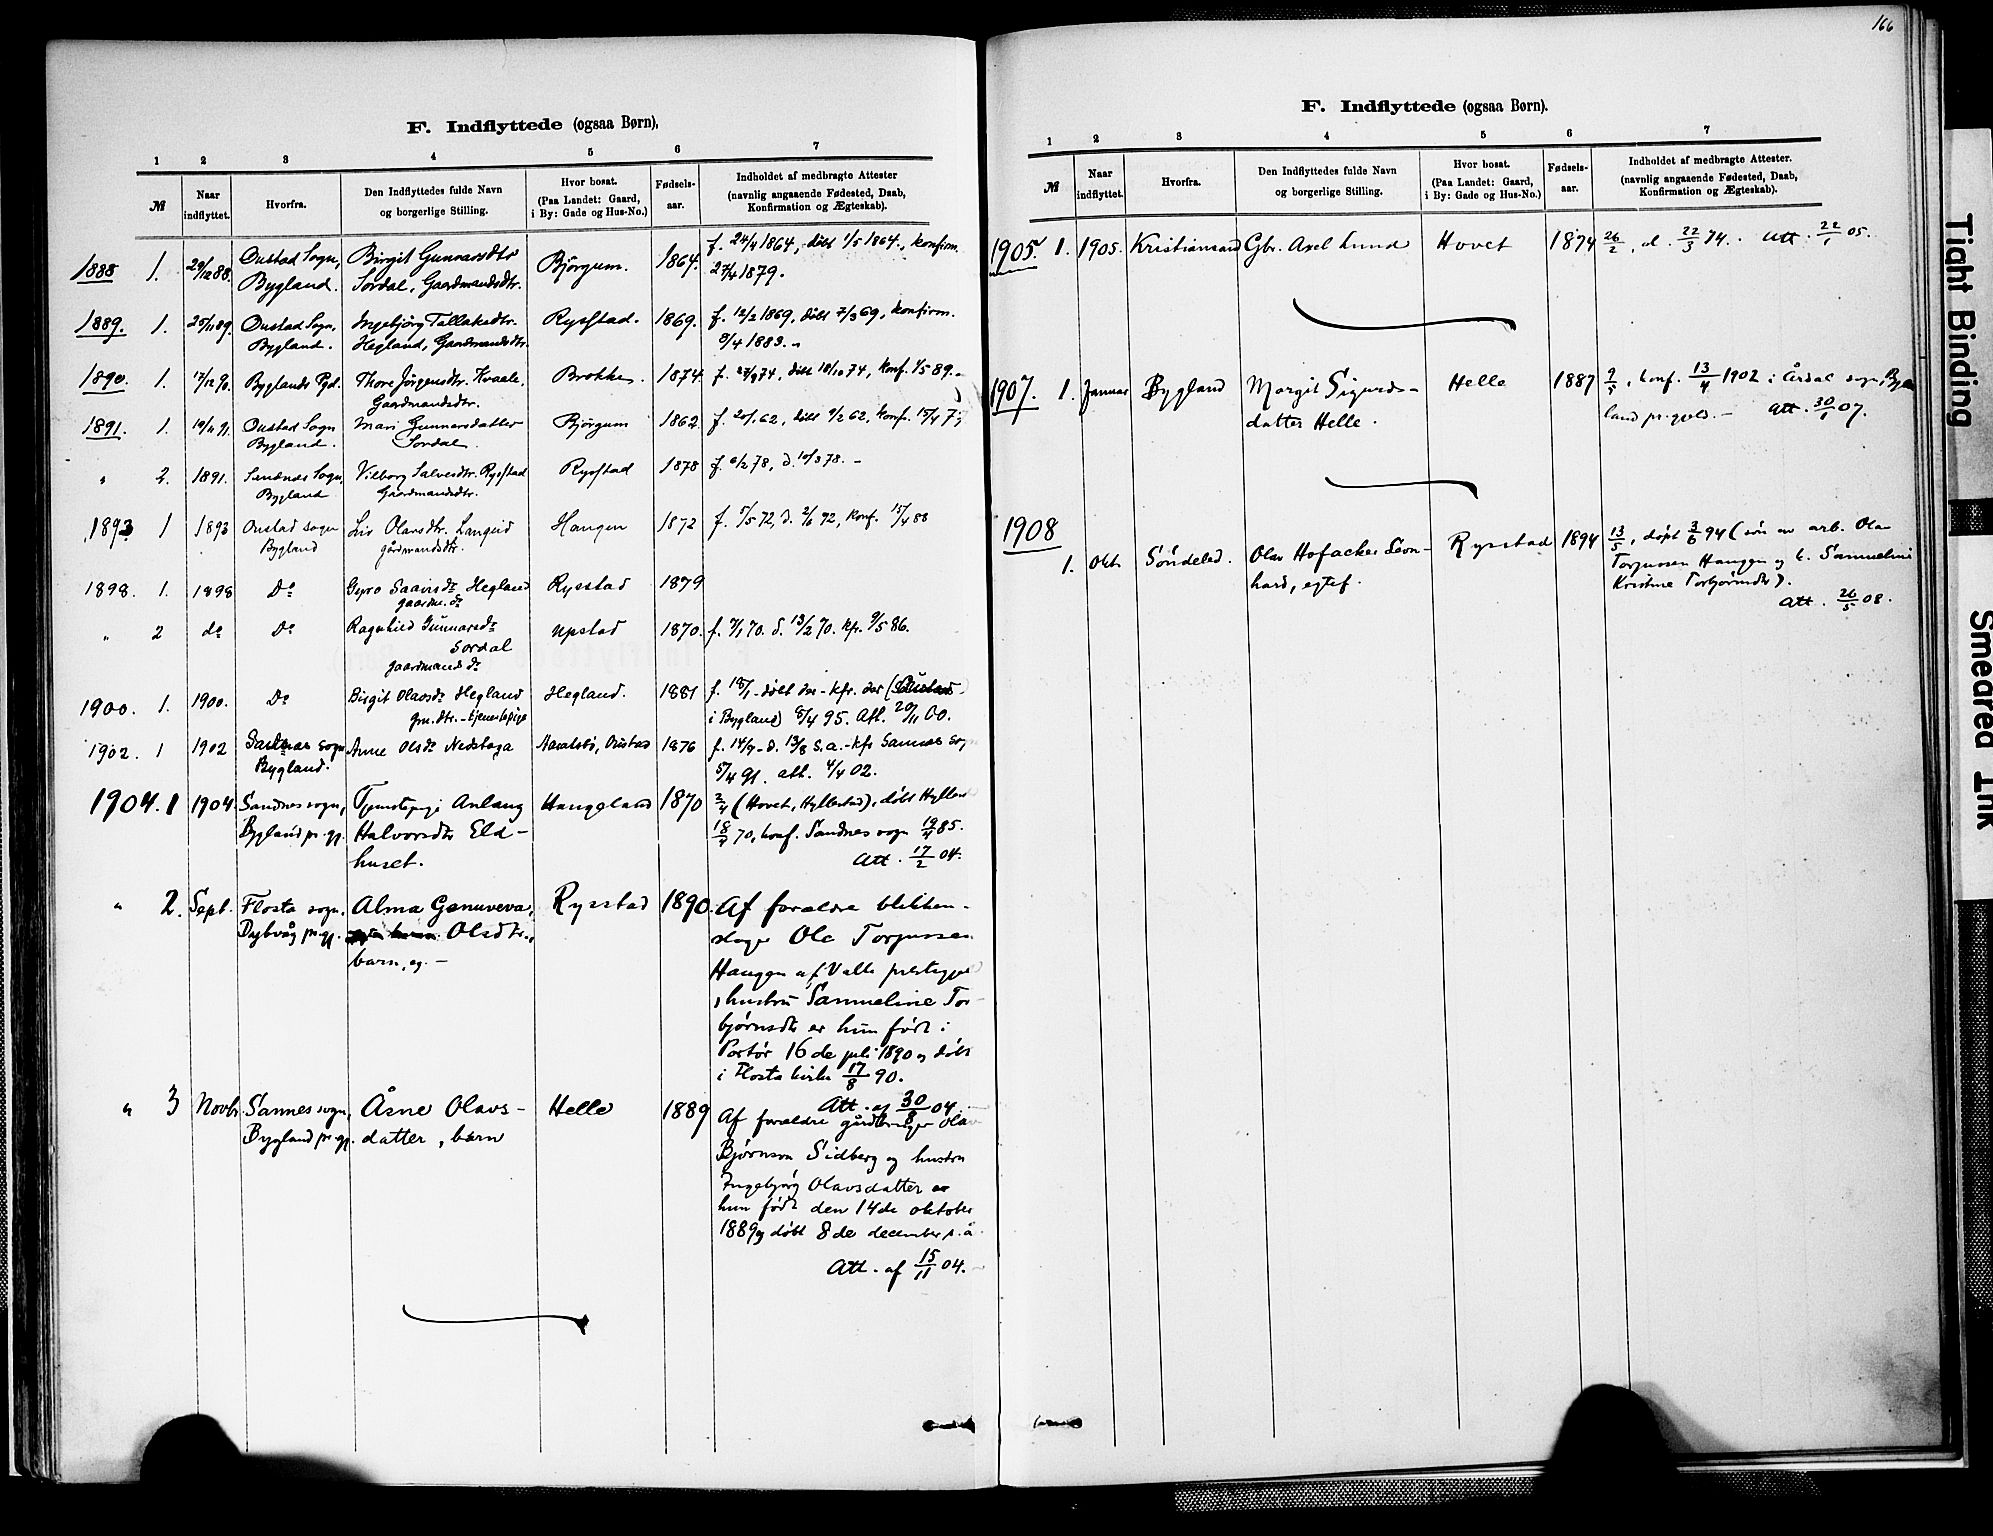 166
F. Indflyttede (ogsaa Børn).
1 2 3 4 5 6 7
№
Naar indflyttet.
Hvorfra.
Den Indflyttedes fulde Navn og borgerlige Stilling.
Hvor bosat. (Paa Landet: Gaard, i By: Gade og Hus-No.)
Fødsels-aar.
Indholdet af medbragte Attester (navnlig angaaende Fødested, Daab, Konfirmation og Ægteskab).
1888 1. 29/12 88. Oustad Sogn, Birgit Gunnarsdtr Bjørgum. 1864. f. 24/4 1864, døbt 1/5 1864, konfirm.
Bygland. Sordal, Gaardmandsdtr. 27/4 1879.
1889. 1. 25/11 89. Oustad Sogn, Ingebjørg Tallaksdtr. Rysstad. 1869. f. 12/2 1869, døbt 7/3 69, konfirm.
Bygland. Hegland, Gaardmandsdtr. 8/4 1883.
1890. 1. 17/12 90. Byglands Pgd. Thore Jørgensdtr. Kvaale, Brokke. 1874. f. 27/9 74, døbt 18/10 74, konf. 1589.
Gaardmandsdtr.
1891. 1. 10/4 91. Oustad Sogn Mari Gunnarsdatter Bjørgum 1862. f. 20/1 62, døbt 9/2 62, konf. 15/4 7
Bygland. Sordal.
" 2. 1891. Sandnes Sogn, Vilborg Salvesdtr. Rysstad Rysstad 1878 f. 6/2 78, d. 10/3 78. -
Bygland Gaardmandsdtr.
1893 1 1893 Oustad sogn Liv Olavsdtr. Langeid Haugen 1872 f. 5/5 72, d. 2/6 92, konf. 15/4 88
Bygland gårdmandsdtr.
1898. 1. 1898 Do Gyro Saavisdr Hegland Rysstad 1879
gaardm. dr
" 2 do Do Ragnhild Gunnarsdr Upstad 1870. f. 7/1 70. d. 13/2 70. kfr. 9/5 86.
Sordal
gaardmands dr
1900. 1. 1900. Do Birgit Olavsdr Hegland Hegland. 1881 f. 18/1 - døbt der - kfr. der (Oustad
gm. dtr. - tjenestepige i Bygland) 5/4 95. Att. 20/11 00.
1902. 1 1902 Sandnes sogn Anne Olsdr Nedstoga 1876 f. 14/7 - d. 13/8 s.a. - kfr Sannes sogn
Bygland. 5/4 91. att. 4/4 02.
1904. 1 1904. Sandnes sogn, Tjenestepige Anlaug Hauggland 1870 2/4 (Hovet, Hyllestad), døbt Hylles
Bygland pr.gj. Halvorsdtr Eld- 18/4 70, konf. Sandnes sogn 19/4 85.
huset. Att. 17/2 04.
" 2. Sept. Flosta sogn, Alma Genuveva, Rysstad 1890. Af forældre blikken-
Dybvåg pr.gj. Olsdtr., slager Ole Torjussen
barn, eg. - Haugen af Valle prestegjeld
, hustru Sammeline Tor-
bjørnsdtr er hun født i
Portør 16de juli 1890 og døbt
i Flosta kirke 17/8 90.
Att. af 30/8 04.
" 3 Novbr. Sannes sogn, Åsne Olavs- Helle 1889 Af forældre gårdbruger Olav
Bygland pr.gj. datter, barn Bjørnson Sidberg og hustru
Ingebjørg Olavsdatter er
hun født den 14de oktober
1889 og døbt 8de december s.å.
Att. af 15/11 04.
F. Indflyttede (ogsaa Børn).
1 2 3 4 5 6 7
№
Naar indflyttet.
Hvorfra.
Den Indflyttedes fulde Navn og borgerlige Stilling.
Hvor bosat. (Paa Landet: Gaard, i By: Gade og Hus-No.)
Fødsels-aar.
Indholdet af medbragte Attester. (navnlig angaaende Fødested, Daab, Konfirmation og Ægteskab).
1905. 1. 1905. Kristianssand Gbr. Axel Lund Hovet 1874 26/2, d. 22/3 74. Att. 22/1 05.
1907. 1. Januar Bygland Margit Sigurds- Helle 1887 9/5, konf. 13/4 1902 i Årdal sogn, Byg
datter Helle. land pr.gjeld. - Att. 30/1 07.
1908
1. Okt. Søndeled. Olav Hofacker Leon- Rysstad 1894 13/5, døpt 3/6 94 (søn av arb. Ola
hard, egtef. Torjussen Haugen og h. Sammeline
Kristine Torbjørnsdtr).
Att. 26/5 08.
Tight Binding
Smeared Ink